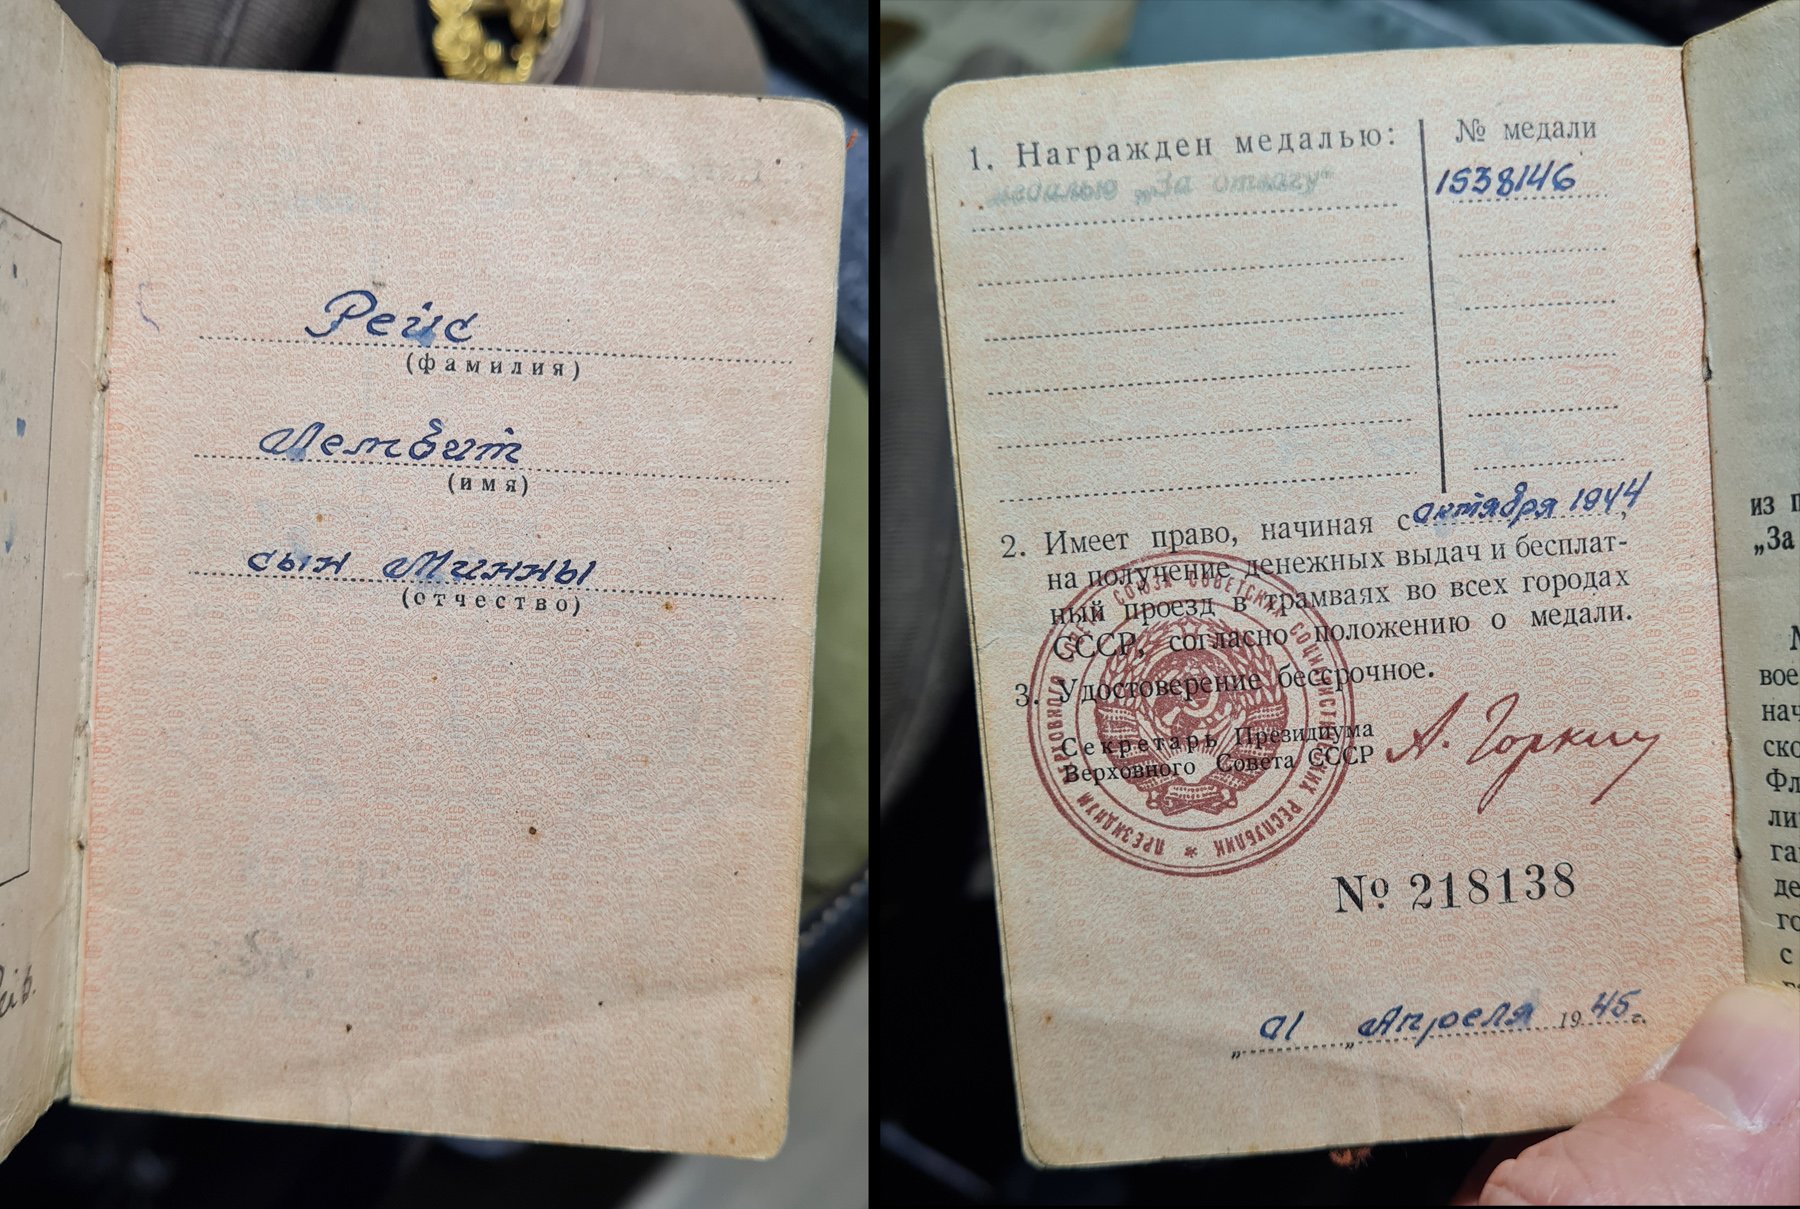 Рейс
(фамилия)
Лембит
(имя)
сын Минны
(отчество)
1. Награжден медалью:
№ медали
медалью „За отвагу“
1538146
2. Имеет право, начиная с октября 1944,
на получение денежных выдач и бесплат-
ный проезд в трамваях во всех городах
СССР, согласно положению о медали.
3. Удостоверение бессрочное.
Секретарь Президиума
Верховного Совета СССР
А. Горкин
ПРЕЗИДИУМ ВЕРХОВНОГО СОВЕТА СОЮЗА СОВЕТСКИХ СОЦИАЛИСТИЧЕСКИХ РЕСПУБЛИК
№ 218138
„01 „ Апреля 1945 г.
из п
„За
вое
нач
ско
Фл
ли
га
де
го
с